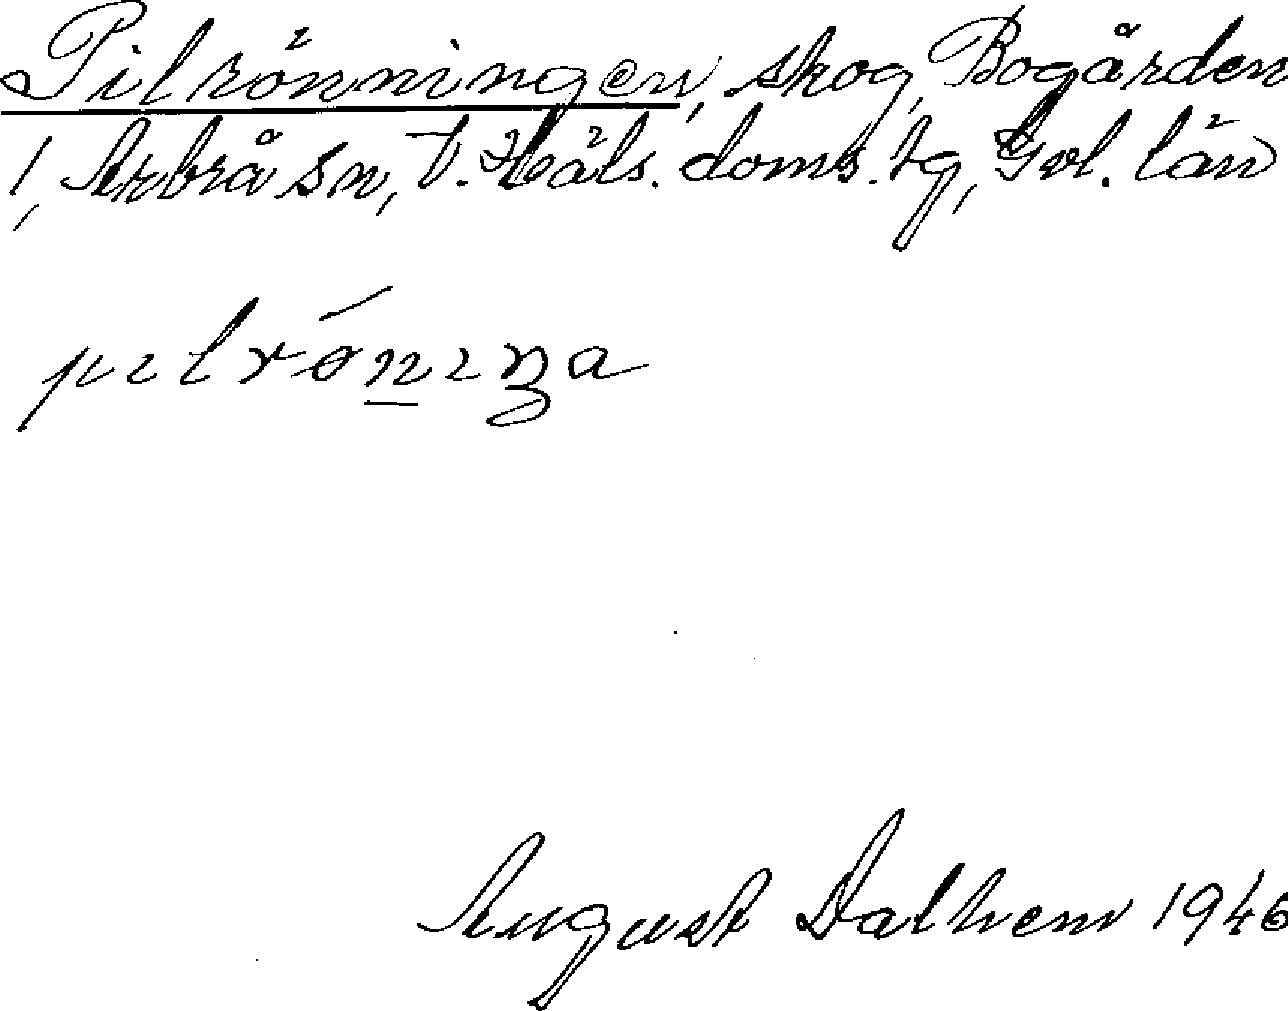 Pilrönningen, skog, Bogården
1, Arbrå sn, V. Häls. doms. tg, Gvl. län
pilrǿniŋa
August Dalhem 1946